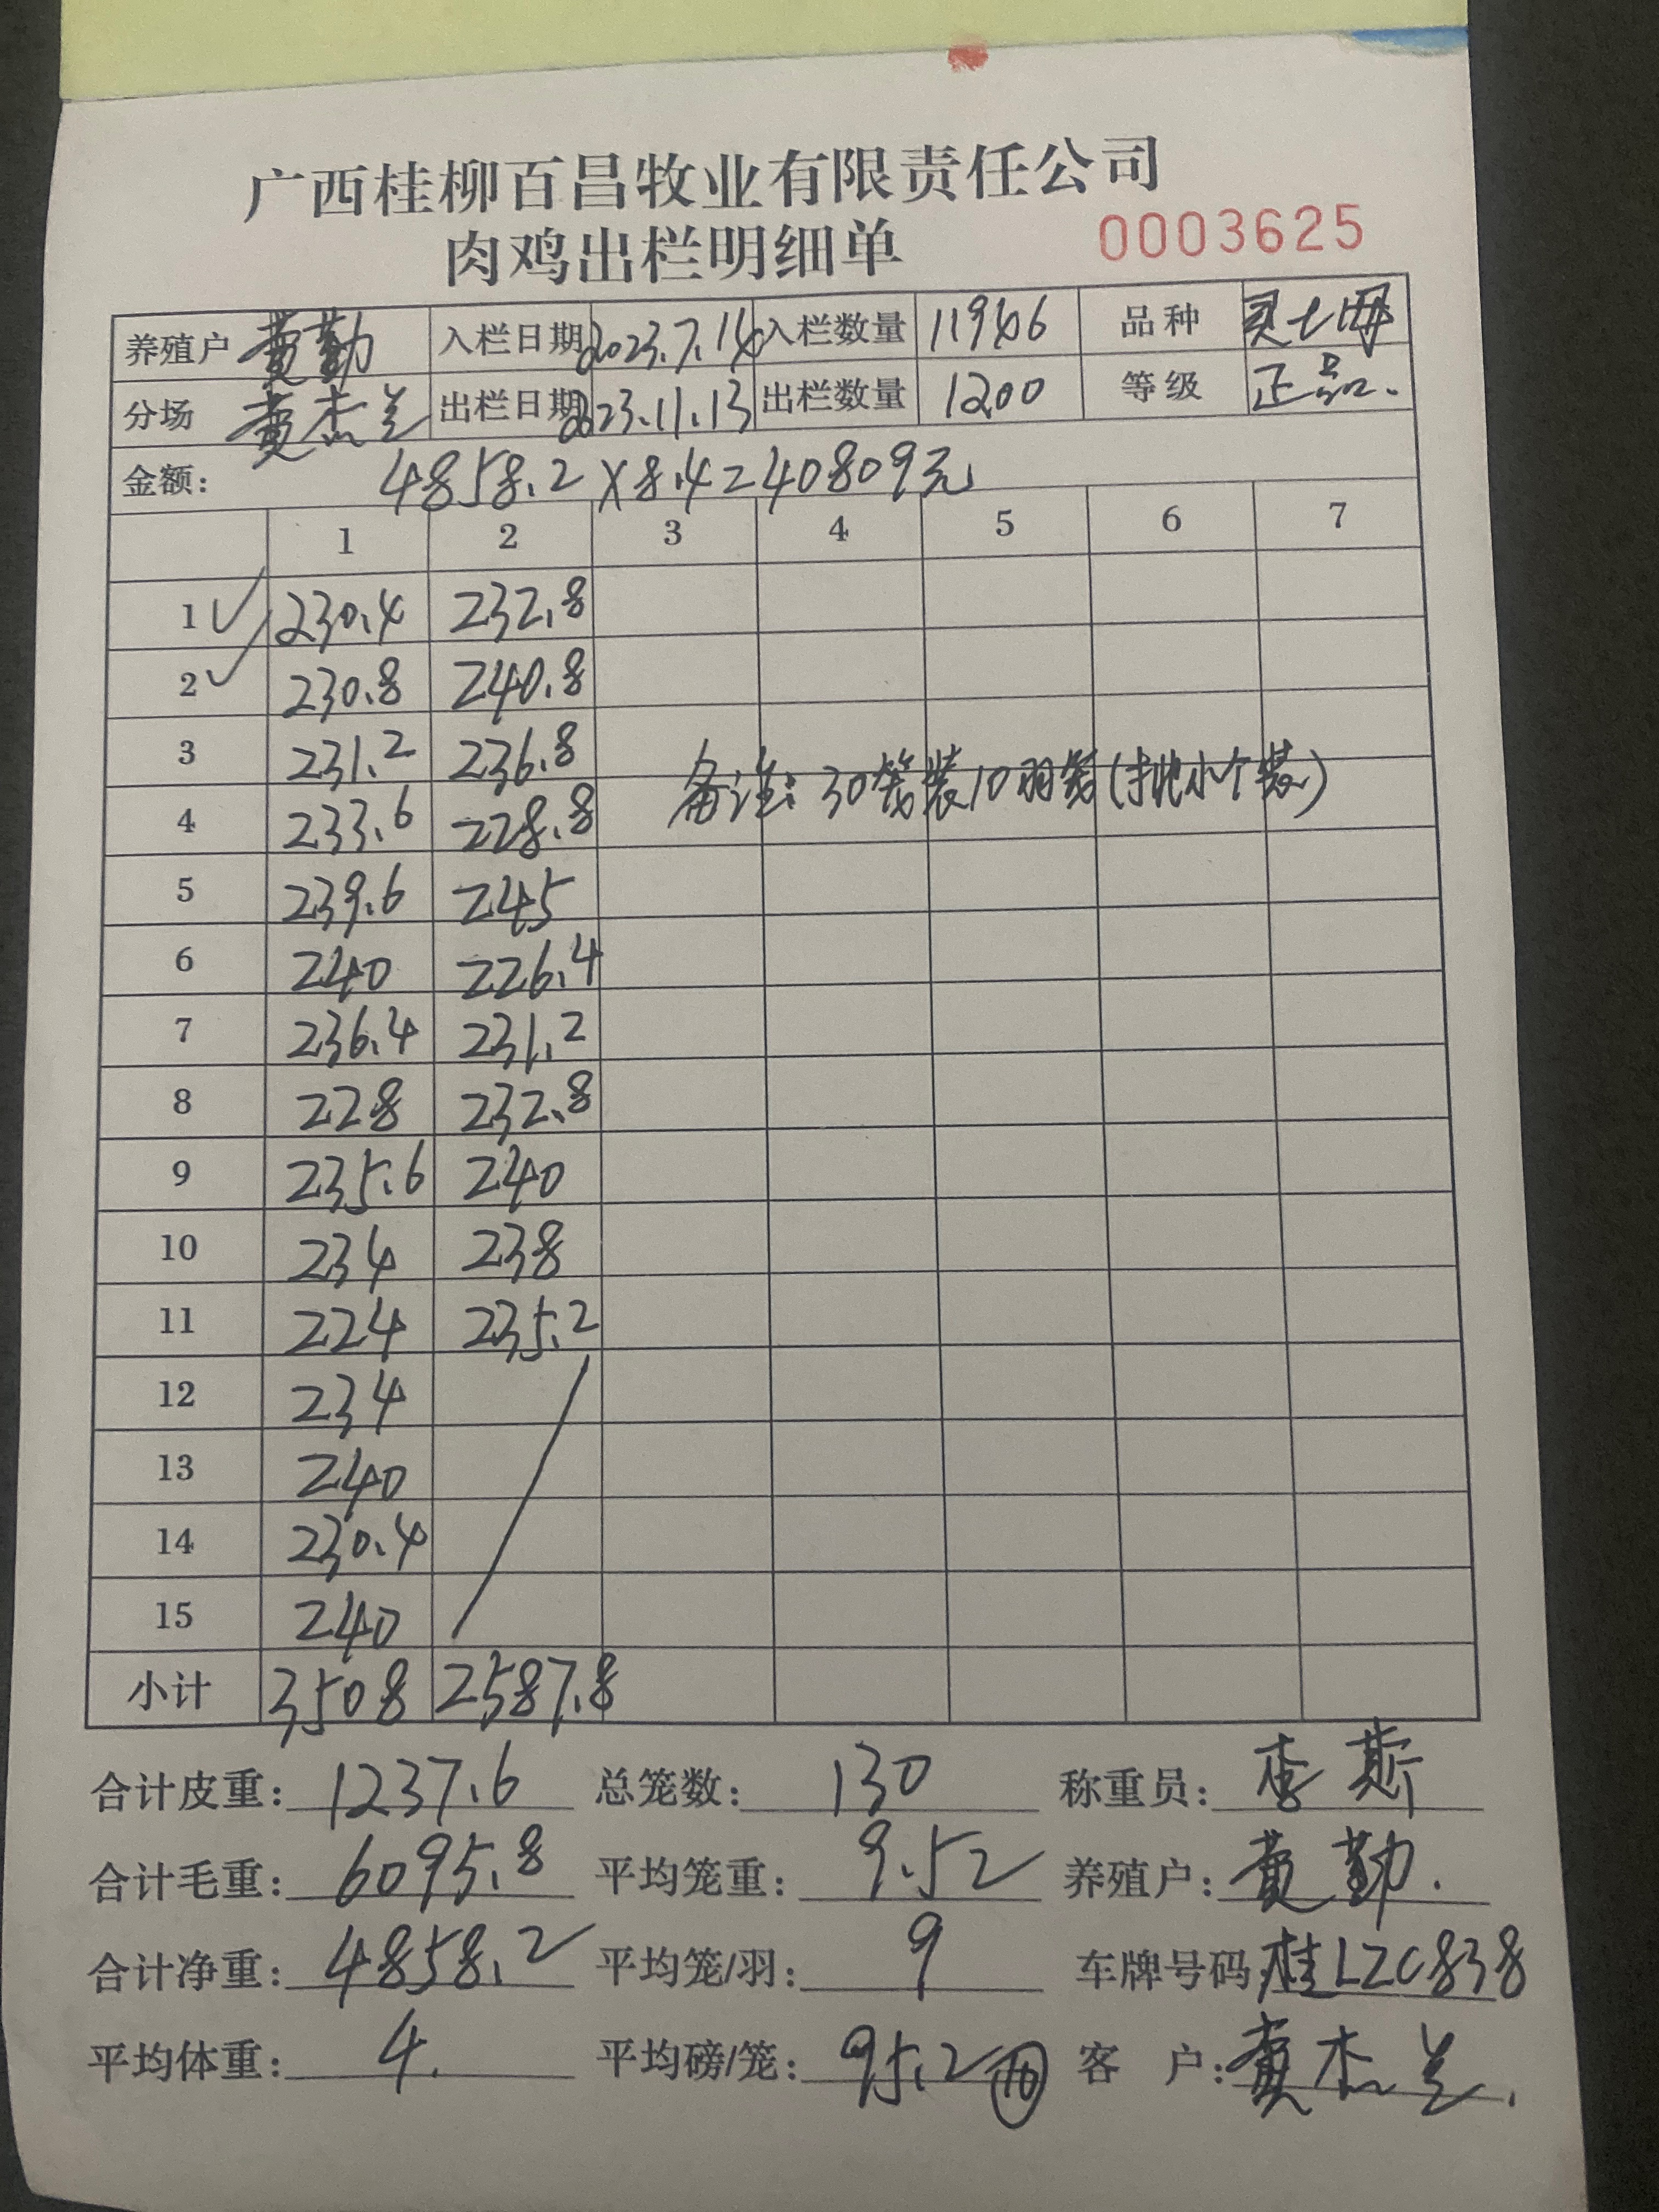 广西桂柳百昌牧业有限责任公司
肉鸡出栏明细单 0003625
养殖户 黄勤 入栏日期 2023.7.14 入栏数量 11946 品种 灵七母
分场 黄杰兰 出栏日期 2023.11.13 出栏数量 1200 等级 正品.
金额: 4858.2×8.4=40809元
1 2 3 4 5 6 7
1 ✓ 230.4 232.8
2 ✓ 230.8 240.8
3 231.2 236.8
备注: 30笼装10羽笼(挑小个装)
4 233.6 228.8
5 239.6 245
6 240 226.4
7 236.4 231.2
8 228 232.8
9 235.6 240
10 234 238
11 224 235.2
12 234
13 240
14 230.4
15 240
小计 3508 2587.8
合计皮重: 1237.6 总笼数: 130 称重员: 李斯
合计毛重: 6095.8 平均笼重: 9.52 养殖户: 黄勤.
合计净重: 4858.2 平均笼/羽: 9 车牌号码: 桂LZC838
平均体重: 4. 平均磅/笼: 95.2 ⑩ 客户: 黄杰兰.